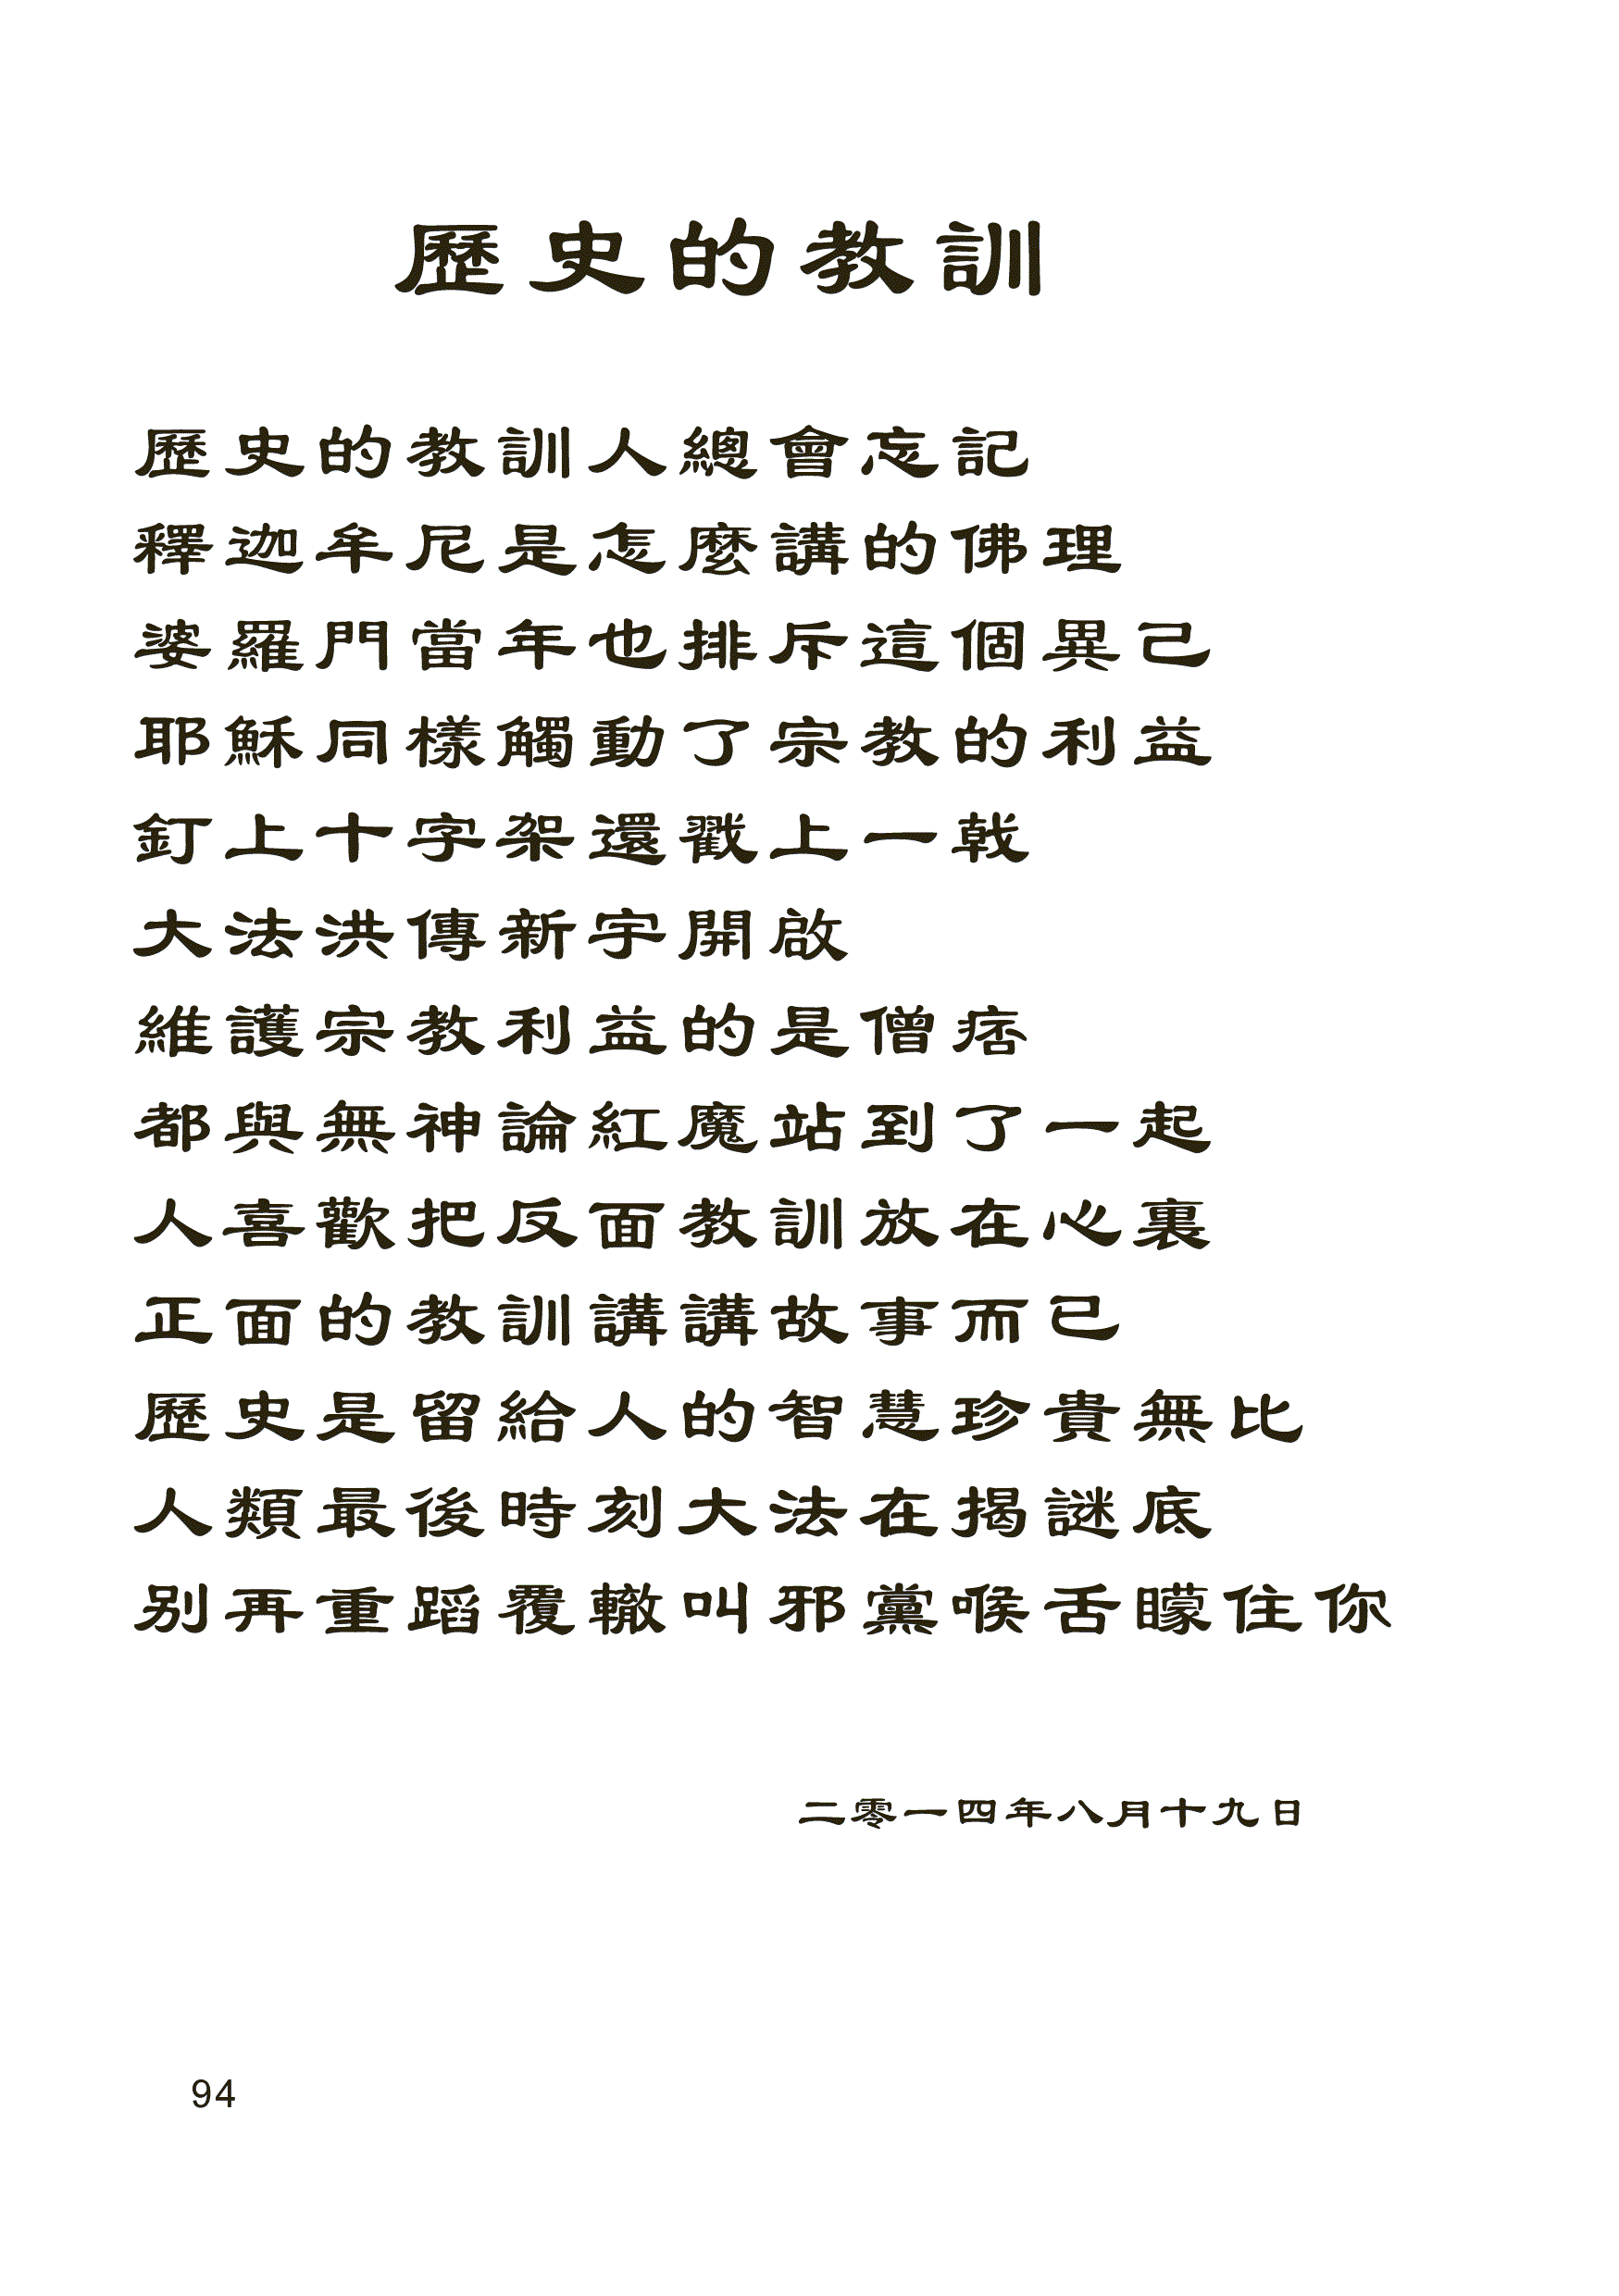 歷史的教訓
歷史的教訓人總會忘記
釋迦牟尼是怎麼講的佛理
婆羅門當年也排斥這個異己
耶穌同樣觸動了宗教的利益
釘上十字架還戳上一戟
大法洪傳新宇開啟
維護宗教利益的是僧痞
都與無神論紅魔站到了一起
人喜歡把反面教訓放在心裏
正面的教訓講講故事而已
歷史是留給人的智慧珍貴無比
人類最後時刻大法在揭謎底
別再重蹈覆轍叫邪黨喉舌矇住你
二零一四年八月十九日
94